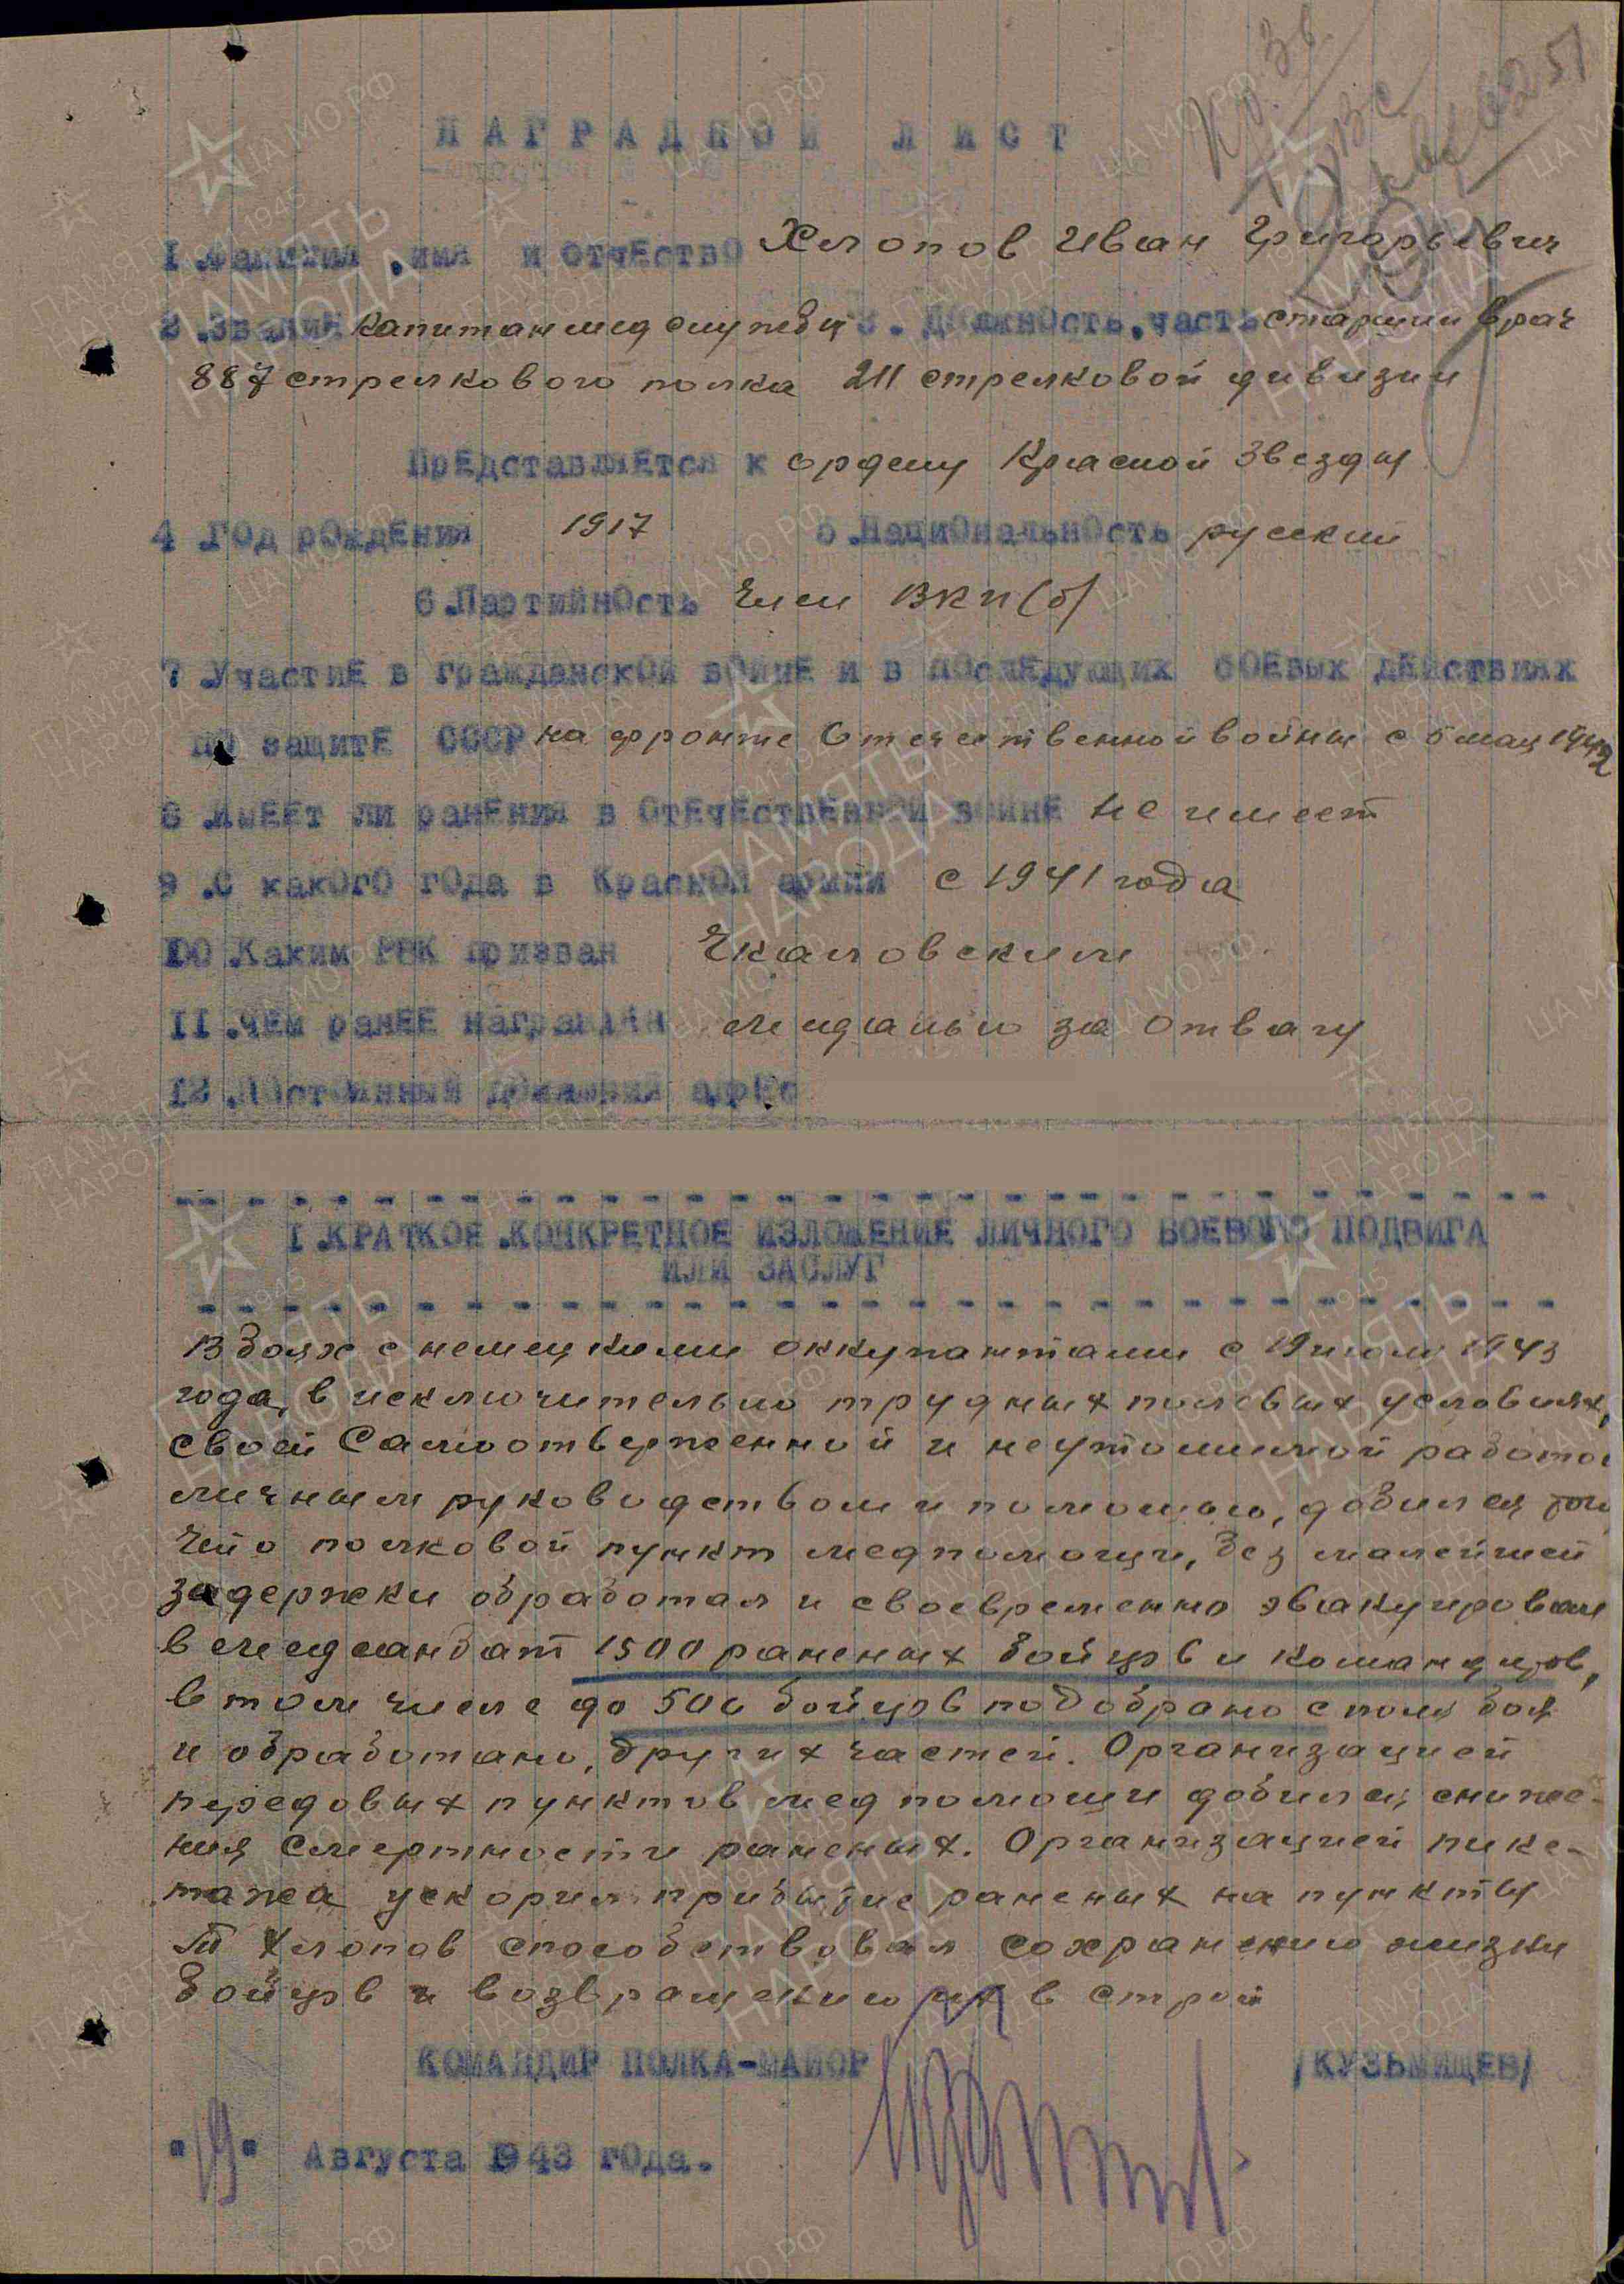 НАГРАДНОЙ ЛИСТ
I.Фамилия.имя и отчество Хлопов Иван Григорьевич
2.Звание капитан медслужбы 3. Должность.часть старший врач
887 стрелкового полка 211 стрелковой дивизии
Представляется к ордену Красной Звезды
4.Год рождения 1917 5.Национальность русский
6.Партийность член ВКП(б)
7.Участие в гражданской войне и в последующих боевых действиях
по защите СССР на фронте Отечественной войны с 5 мая 1942
8.Имеет ли ранения в Отечественной войне не имеет
9.С какого года в Красной армии с 1941 года
10.Каким РВК призван Чкаловским
II.Чем ранее награжден медалью за отвагу
12.Постоянный домашний адрес
I.КРАТКОЕ.КОНКРЕТНОЕ ИЗЛОЖЕНИЕ ЛИЧНОГО БОЕВОГО ПОДВИГА
ИЛИ ЗАСЛУГ
В боях с немецкими оккупантами с 19 июля 1943
года, в исключительно трудных полевых условиях,
своей самоотверженной и неутомимой работой
личным руководством и помощью, добился
что полковой пункт медпомощи, без малейшей
задержки обработал и своевременно эвакуировал
в медсанбат 1500 раненых бойцов и командиров,
в том числе до 500 бойцов подобрано с поля боя
и обработано, других частей. Организацией
передовых пунктов медпомощи добился сниже-
ния смертности раненых. Организацией пике-
тажа ускорил прибытие раненых на пункты
Т Хлопов способствовал сохранению жизни
бойцов и возвращению их в строй
КОМАНДИР ПОЛКА-МАЙОР /КУЗЬМИЩЕВ/
"19" Августа 1943 года.